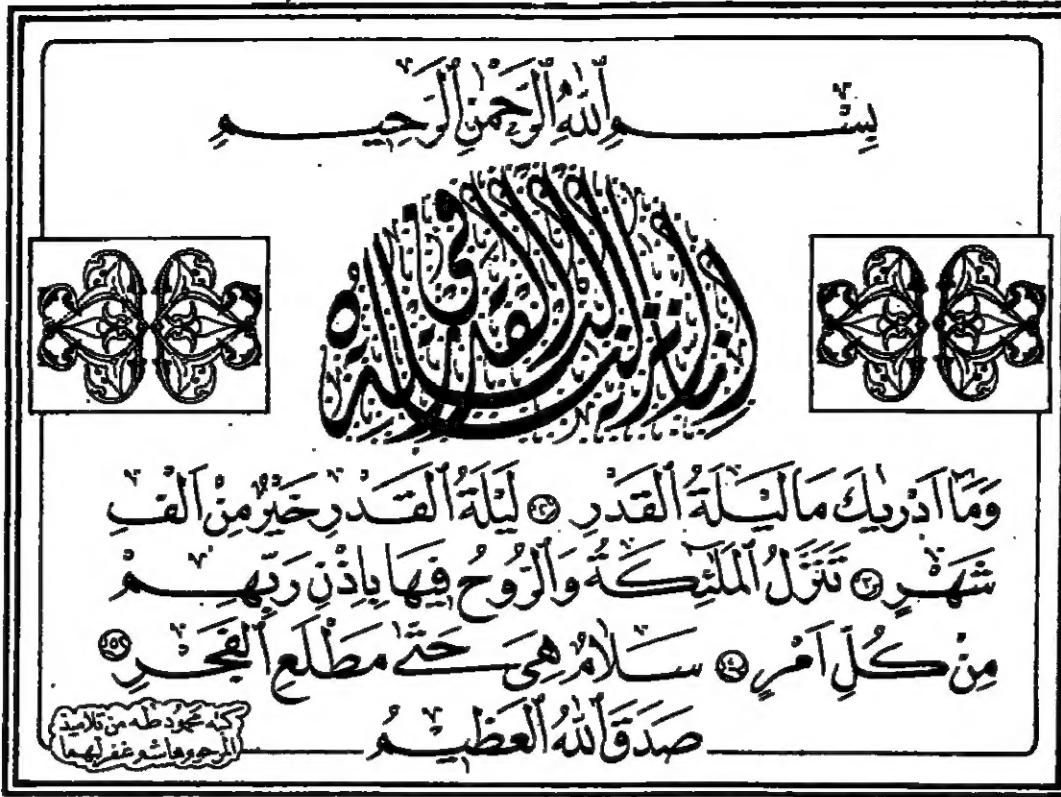 بِسْمِ ٱللهِ ٱلرَّحْمٰنِ ٱلرَّحِيمِ
إِنَّا أَنزَلْنَٰهُ فِي لَيْلَةِ ٱلْقَدْرِ
وَمَٓا اَدْرٰيكَ مَا لَيْلَةُ ٱلْقَدْرِ ۝٢ لَيْلَةُ ٱلْقَدْرِ خَيْرٌ مِنْ اَلْفِ
شَهْرٍ ۝٣ تَنَزَّلُ ٱلْمَلٰٓئِكَةُ وَٱلرُّوحُ فِيهَا بِاِذْنِ رَبِّهِمْ
مِنْ كُلِّ اَمْرٍ ۝٤ سَلَامٌ هِىَ حَتّٰى مَطْلَعِ ٱلْفَجْرِ ۝٥
صَدَقَ ٱللهُ ٱلْعَظِيمُ
كتبه محمود طه من تلاميذ
المرحوم هاشم غفر لهما